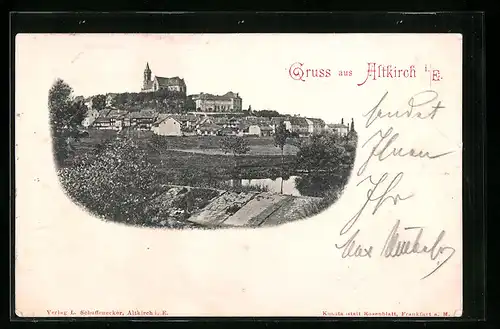 Gruss aus Altkirch i. E.
sendet
Ihnen
Ihr
Max
Verlag L. Schuffenecker, Altkirch i. E.
Kunstanstalt Rosenblatt, Frankfurt a. M.